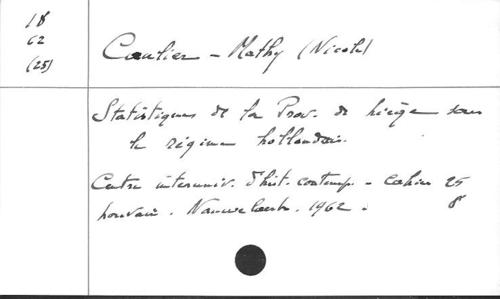 18
62
(25)
Caulier - Mathy (Nicole)
Statistiques de la Prov. de Liège sous
le régime hollandais.
Centre interuniv. d'hist. contemp. - Cahier 25
Louvain. Nauwelaerts. 1962.
8